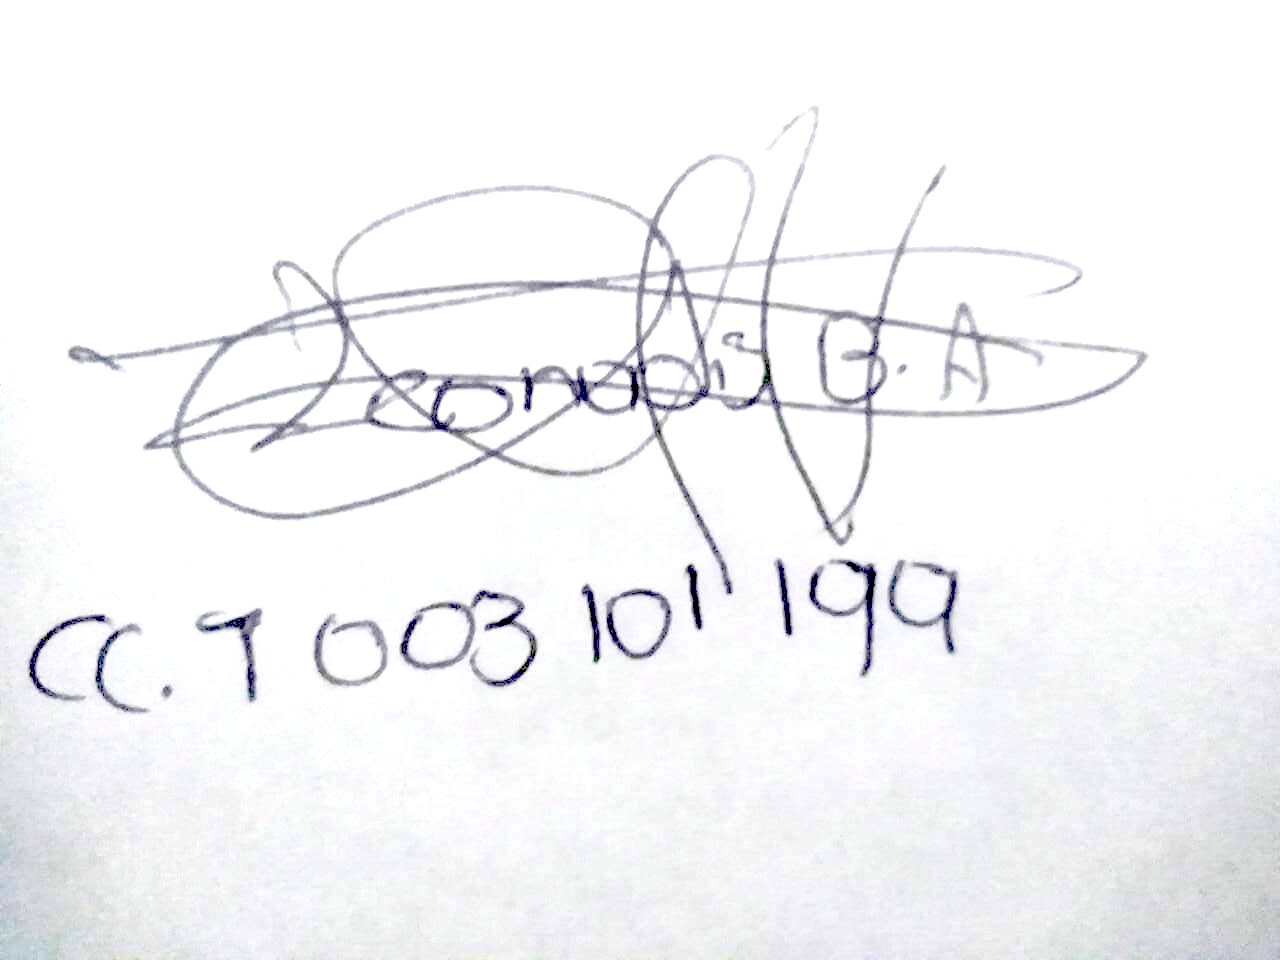 Leonadis B. A
CC. 1 003 101 199